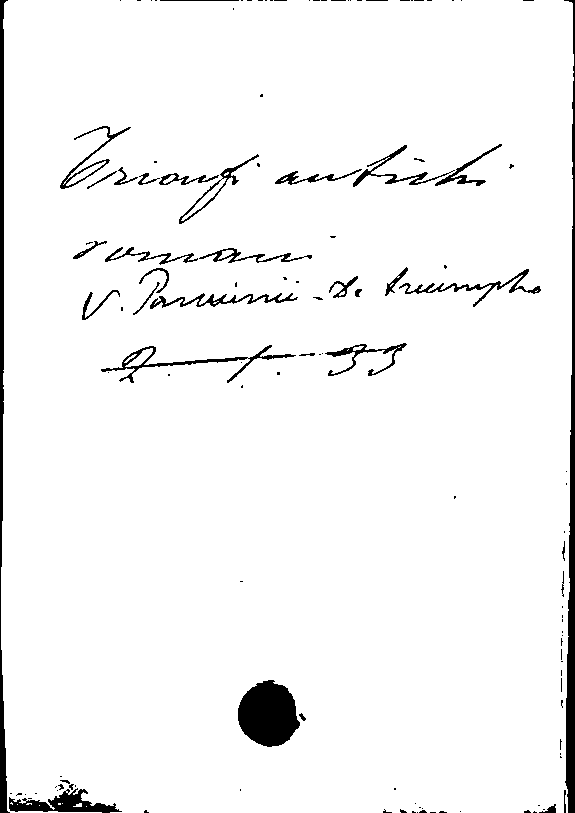 Trionfi antichi
romani
V. Panvinii - De triumpho
2. 1. 33